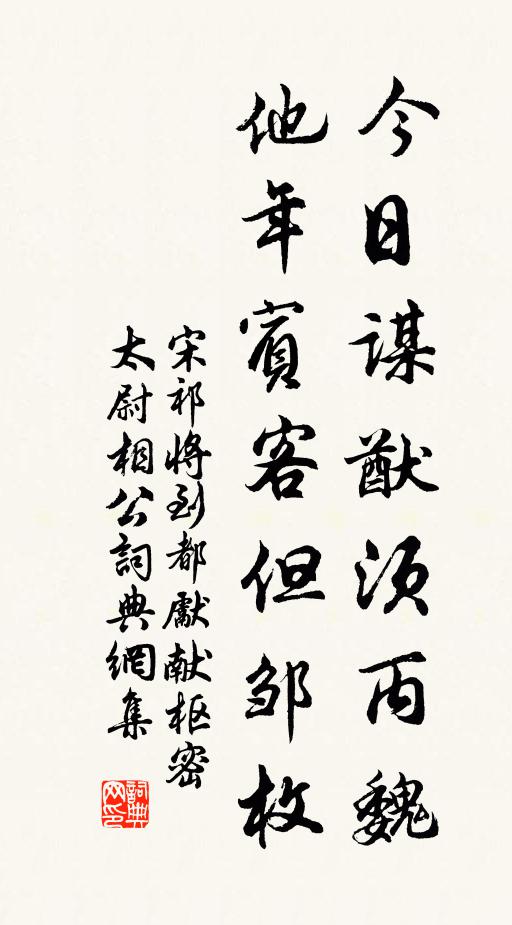 今日謀猷須丙魏
他年賓客但邹枚
宋祁將到都獻献枢密
太尉相公詞典網集
詞典
网印